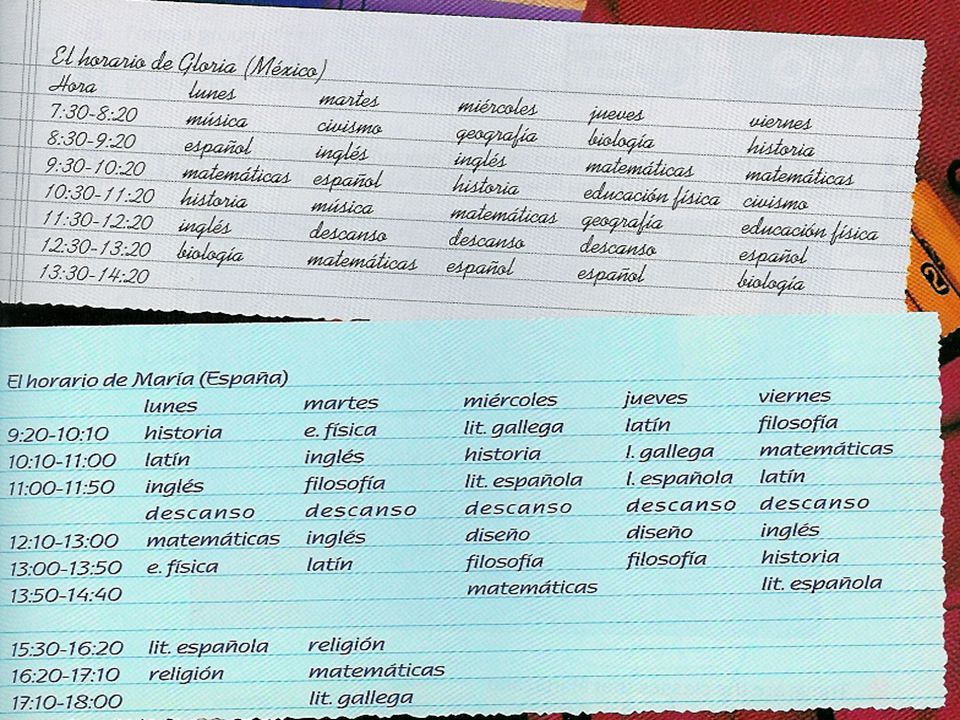 El horario de Gloria (México)
Hora lunes martes miércoles jueves viernes
7:30-8:20 música civismo geografía biología historia
8:30-9:20 español inglés inglés matemáticas matemáticas
9:30-10:20 matemáticas español historia educación física civismo
10:30-11:20 historia música matemáticas geografía educación física
11:30-12:20 inglés descanso descanso descanso español
12:30-13:20 biología matemáticas español español biología
13:30-14:20
El horario de María (España)
lunes martes miércoles jueves viernes
9:20-10:10 historia e. física lit. gallega latín filosofía
10:10-11:00 latín inglés historia l. gallega matemáticas
11:00-11:50 inglés filosofía lit. española l. española latín
descanso descanso descanso descanso descanso
12:10-13:00 matemáticas inglés diseño diseño inglés
13:00-13:50 e. física latín filosofía filosofía historia
13:50-14:40 matemáticas lit. española
15:30-16:20 lit. española religión
16:20-17:10 religión matemáticas
17:10-18:00 lit. gallega
2